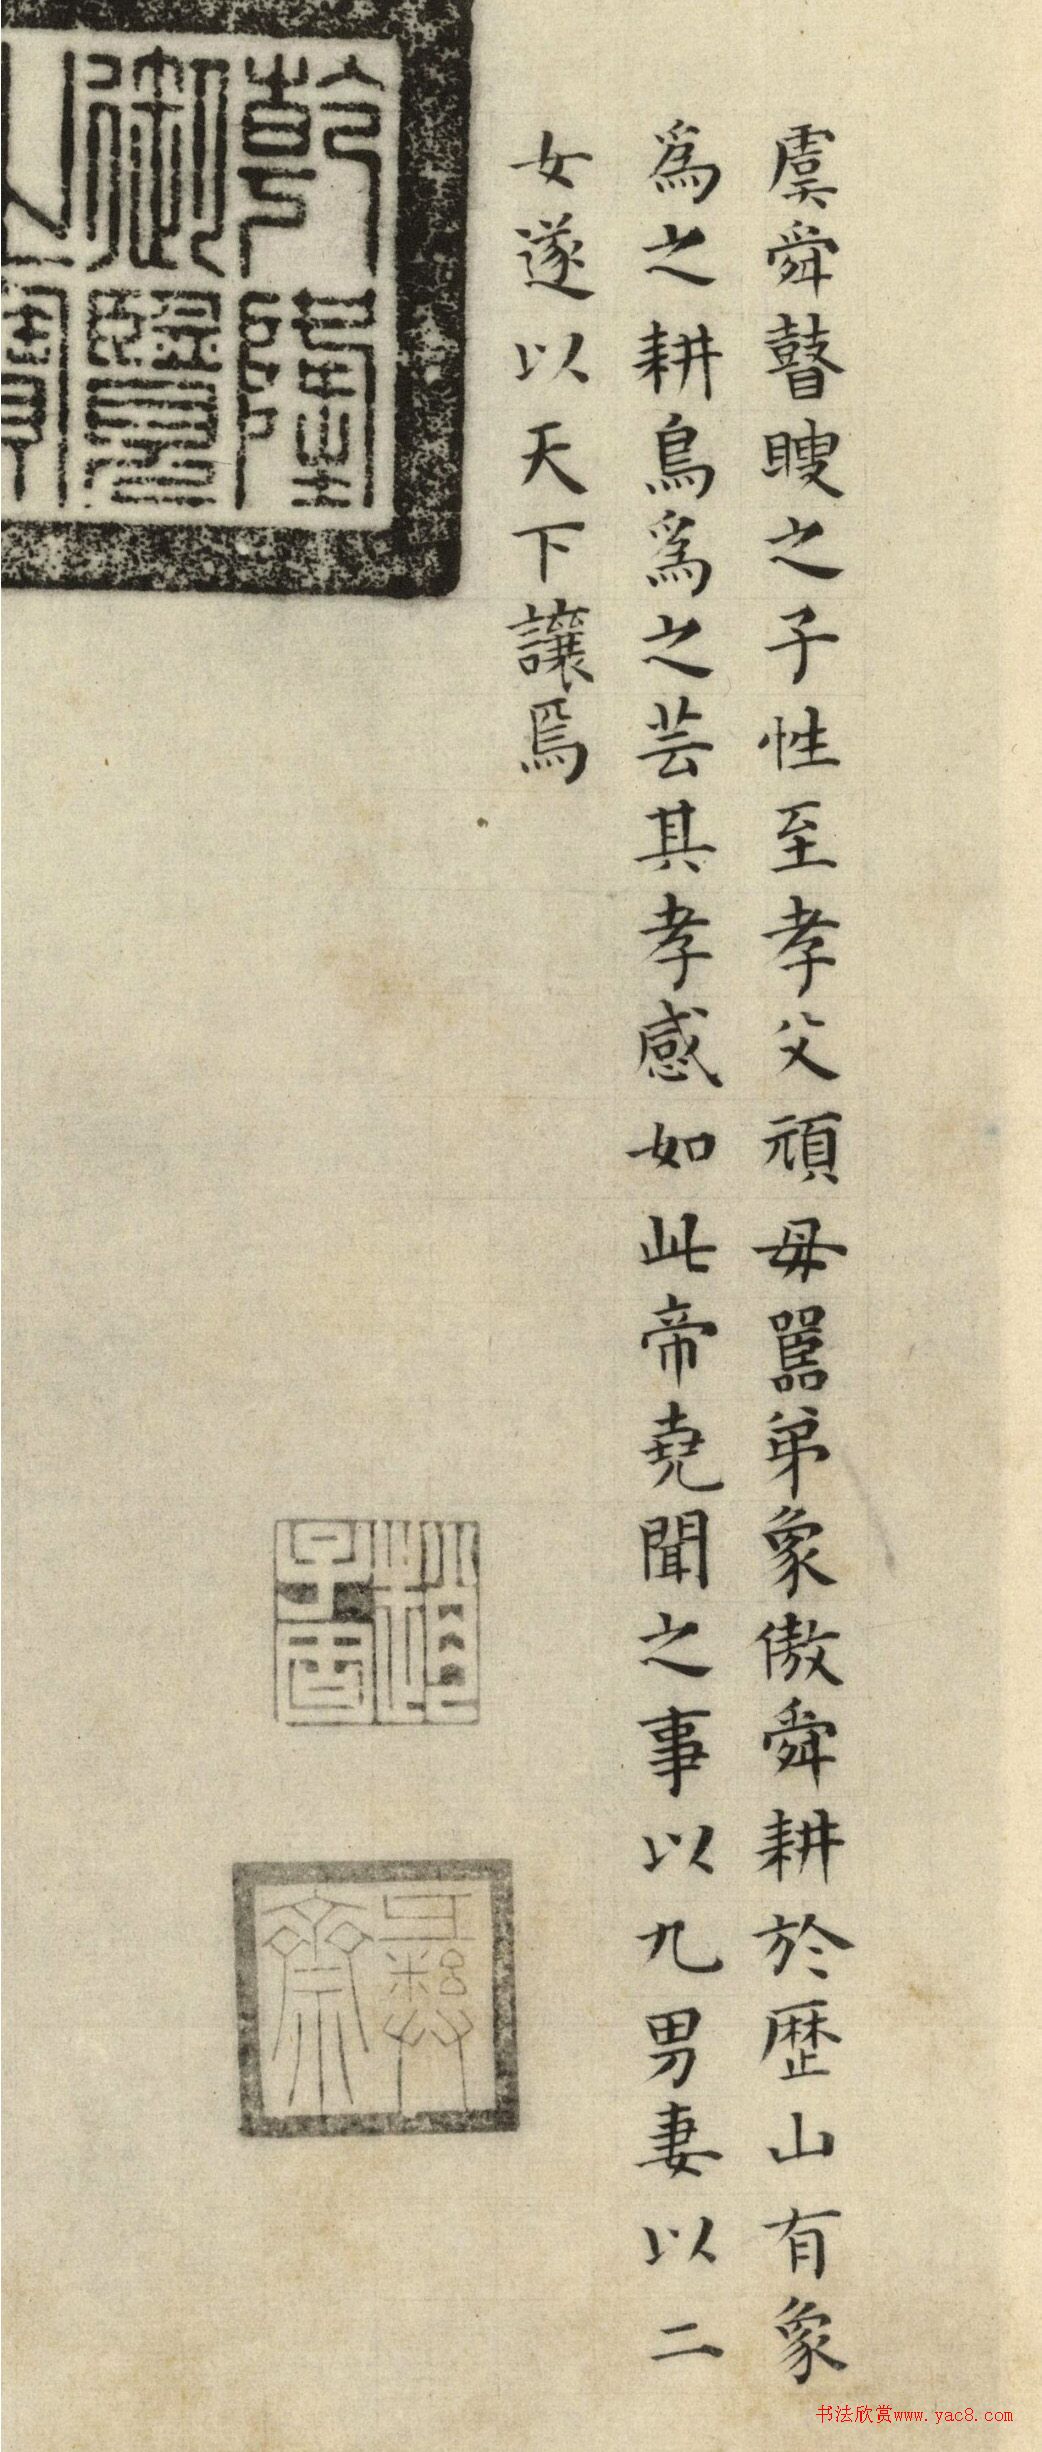 虞舜瞽瞍之子性至孝父頑母嚚弟象傲舜耕於歷山有象
為之耕鳥為之芸其孝感如此帝堯聞之事以九男妻以二
女遂以天下讓焉
乾隆
御覽
之寶
書法欣赏www.yac8.com